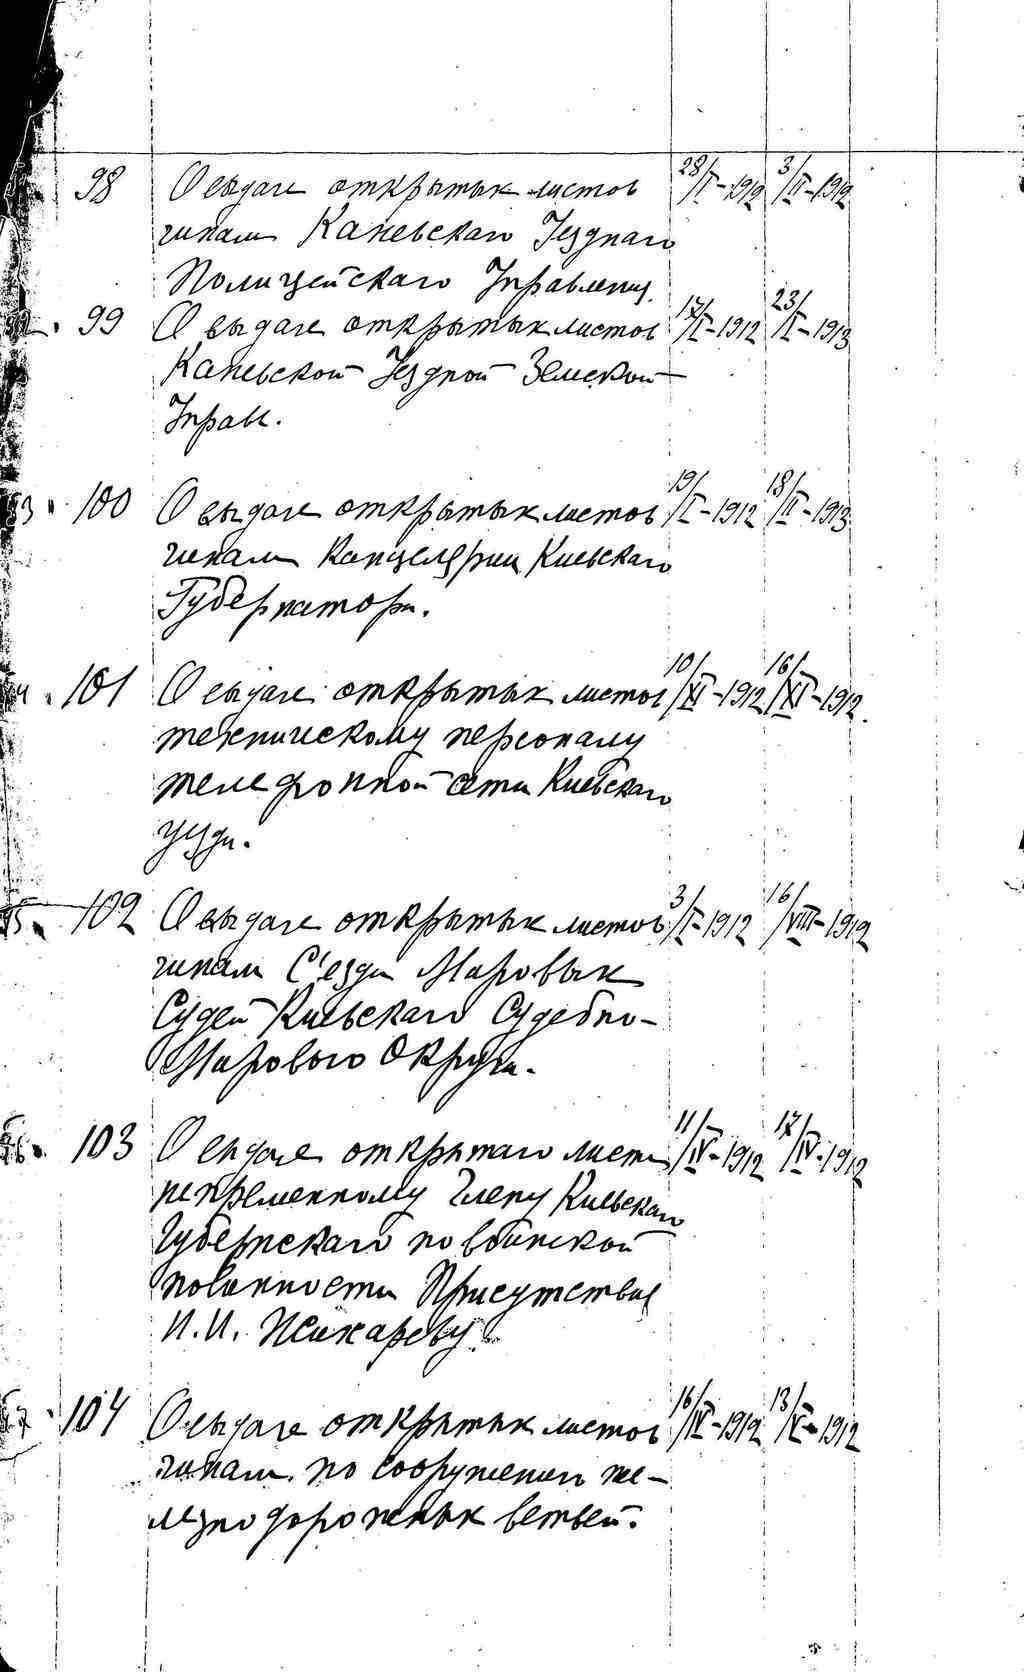 98 О выдаче открытых листов 28/I-1912 3/II-1912
чинам Каневскаго Уезднаго
Полицейскаго Управления.
99 О выдаче открытых листов 17/I-1912 23/I-1913
Каневской Уездной Земской
Управ.
100 О выдаче открытых листов 19/I-1912 18/II-1913
чинам Канцелярии Киевскаго
Губернатора.
101 О выдаче открытых листов 10/XI-1912 16/XI-1912.
техническому персоналу
телефонной сети Киевскаго
уезда.
102 О выдаче открытых листов 3/I-1912 16/VIII-1912
чинам С'езда Мировых
Судей Киевскаго Судебно-
Мирового Округа.
103 О выдаче открытаго листа 11/IV-1912 17/IV-1912
непременному Члену Киевскаго
Губернскаго по воинской
повинности Присутствия
И.И. Жихареву.
104 О выдаче открытых листов 16/IV-1912 13/V-1912
чинам по сооружению же-
лезнодорожных ветвей.